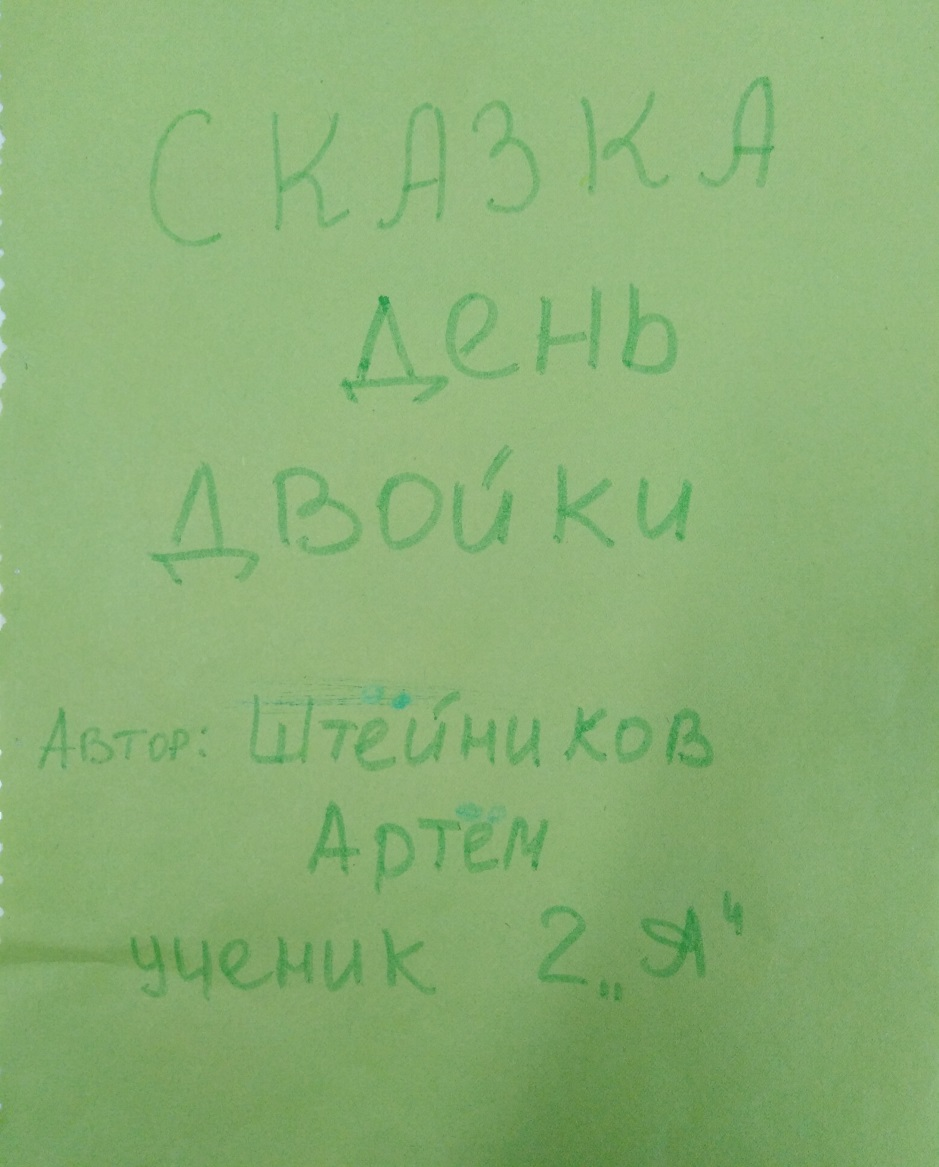 СКАЗКА
День
Двойки
Автор: Штейников
Артём
ученик 2 „Я“